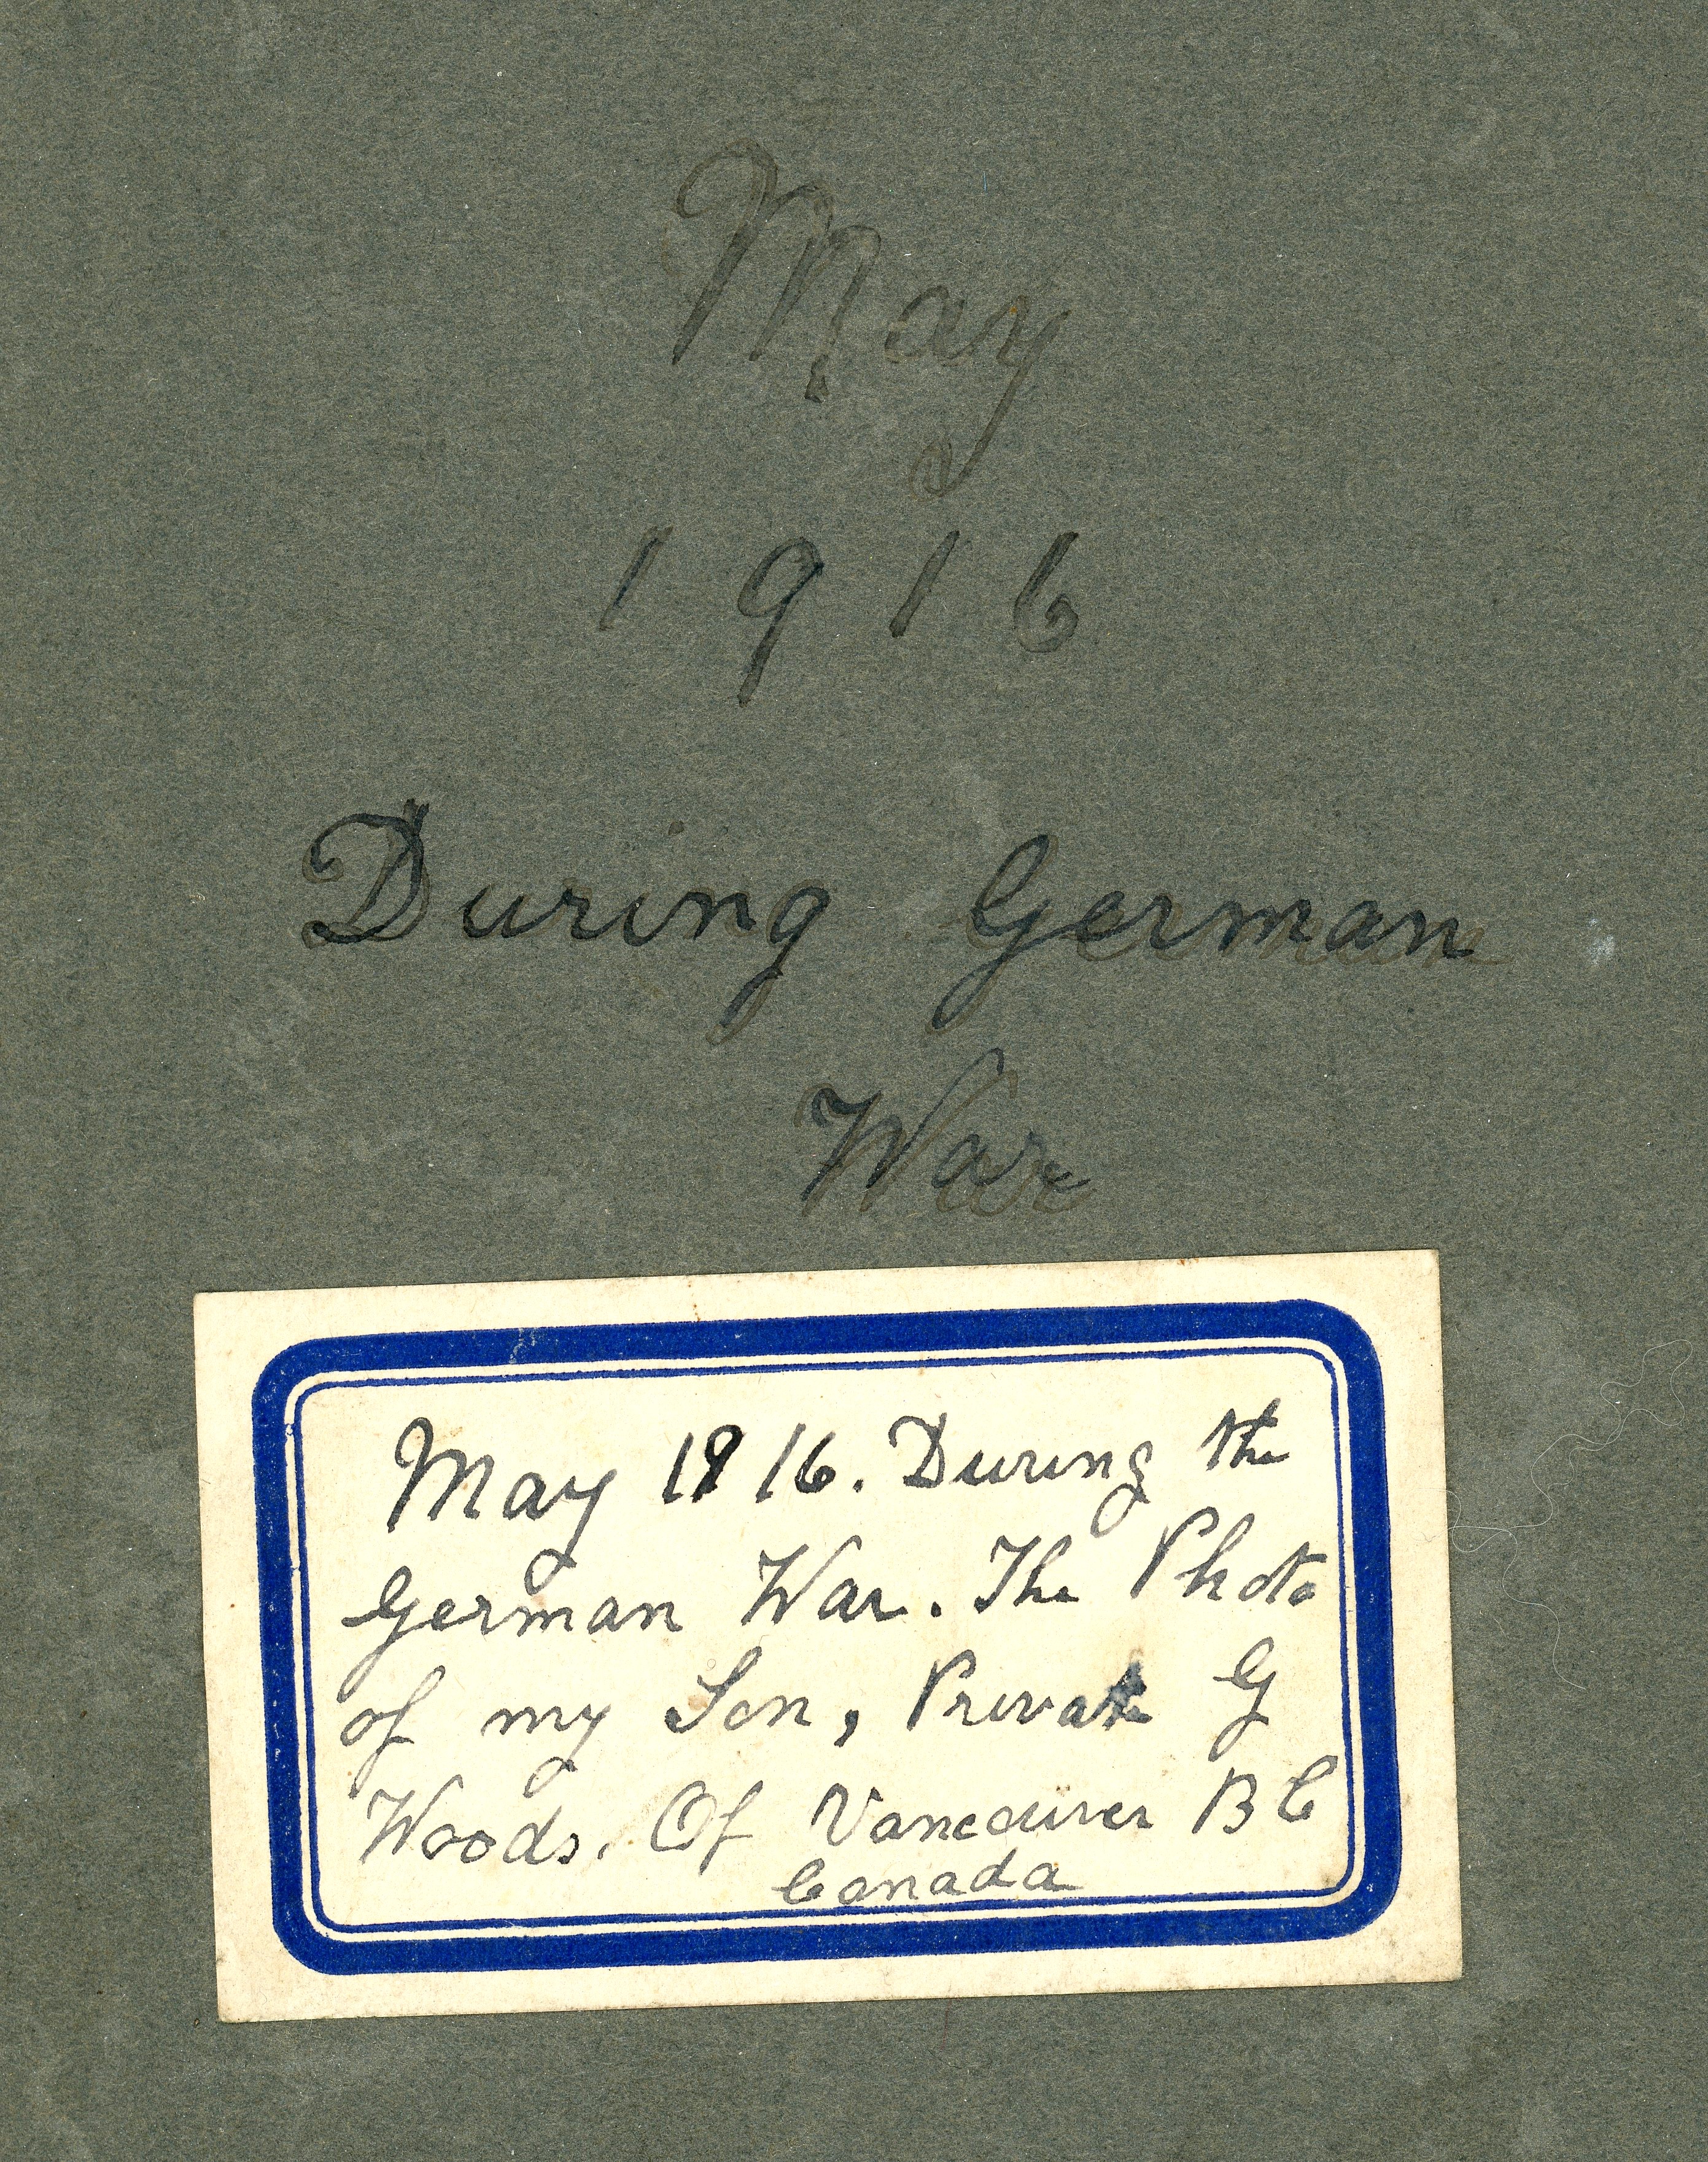 May
1916
During German
War
May 1916. During the
German War. The Photo
of my Son, Private G
Woods. Of Vancouver B C
Canada